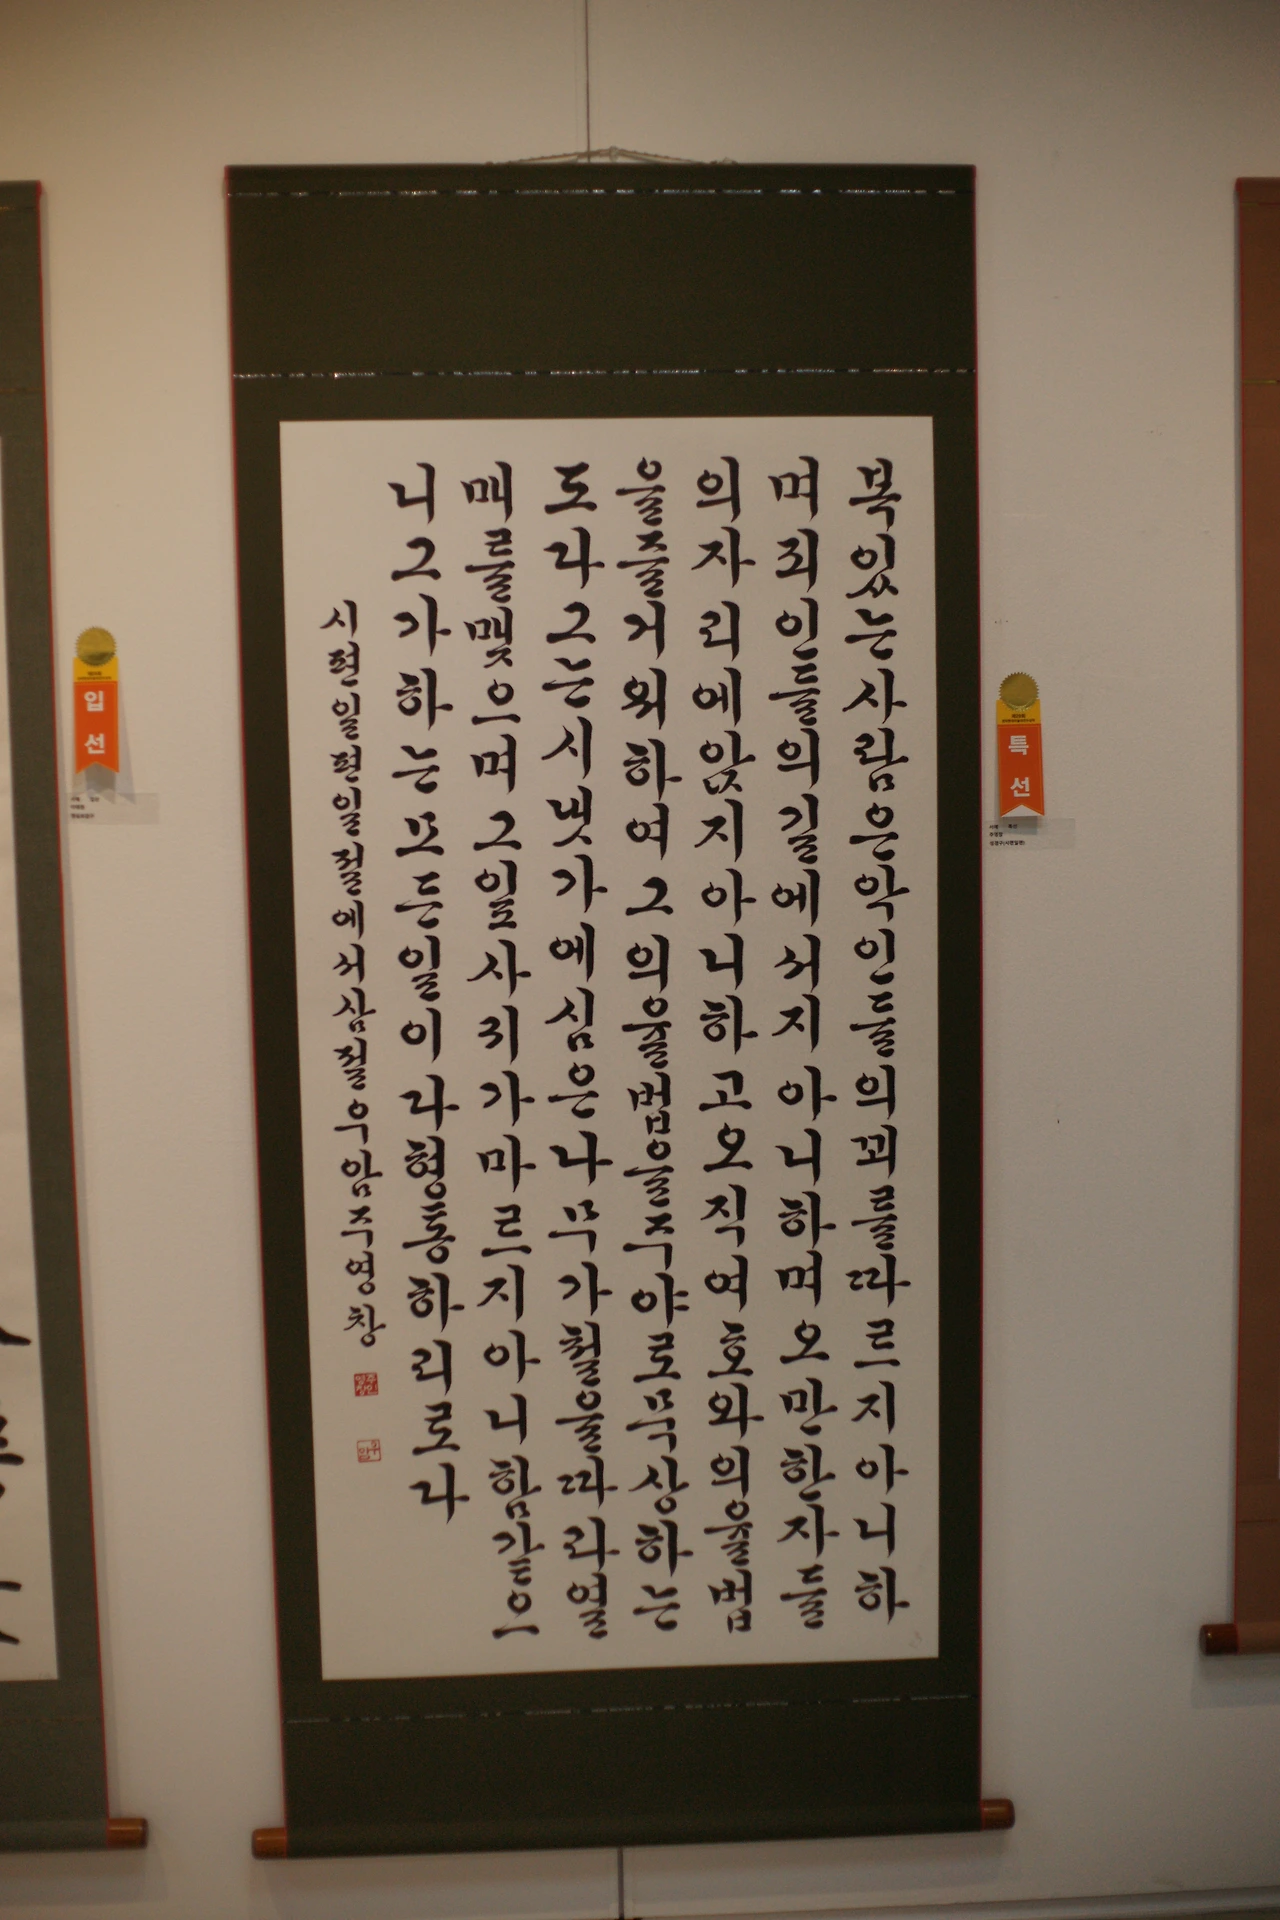 복있는사람은악인들의꾀를따르지아니하
며죄인들의길에서지아니하며오만한자들
의자리에앉지아니하고오직여호와의율법
을즐거워하여그의율법을주야로묵상하는
도다그는시냇가에심은나무가철을따라열
매를맺으며그잎사귀가마르지아니함같으
니그가하는모든일이다형통하리로다
시편일편일절에서삼절우암주영창
주인영창
우암
특선
서예 특선
주영창
성경구(시편일편)
입선